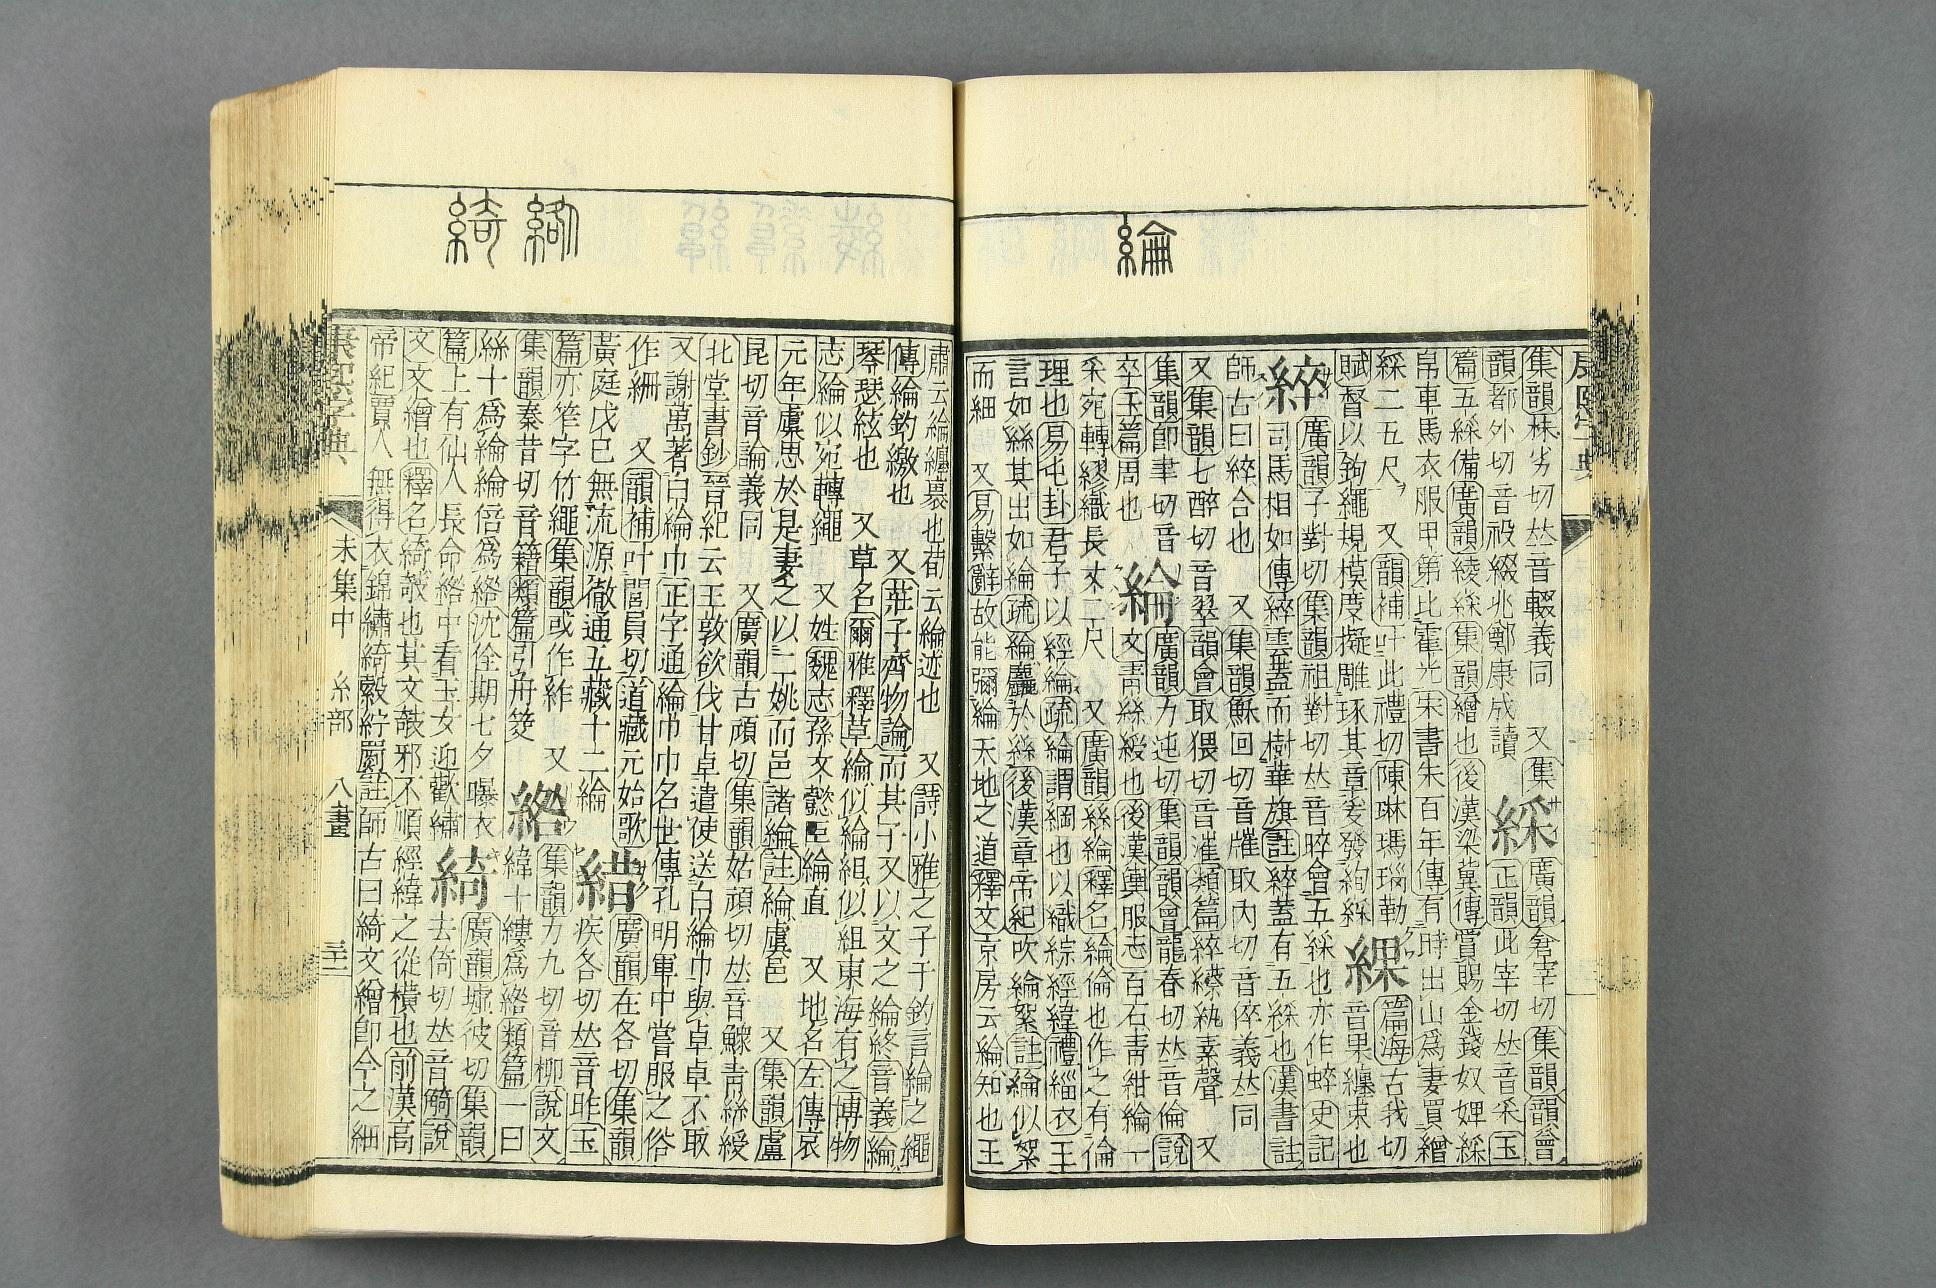 綸
集韻株劣切𠀤音輟義同 又集
韻都外切音祋綴兆鄭康成讀 綵 廣韻倉宰切集韻韻會
正韻此宰切𠀤音采玉
篇五綵備廣韻綾綵集韻繒也後漢梁冀傳賞賜金錢奴婢綵
帛車馬衣服甲第比霍光宋書朱百年傳有時出山爲妻買繒
綵二五尺 又韻補叶此禮切陳琳瑪瑙勒
賦督以鉤繩規模度擬雕琢其章爰發絢綵 綶 篇海古我切
音果纏束也
綷 廣韻子對切集韻祖對切𠀤音晬會五綵也亦作䘹史記
司馬相如傳綷雲蓋而樹華旗註綷蓋有五綵也漢書註
師古曰綷合也 又集韻穌回切音膗取內切音倅義𠀤同
又集韻七醉切音翠韻會取猥切音漼類篇綷縩紈素聲 又
集韻卽聿切音
卒玉篇周也 綸 廣韻力迍切集韻韻會龍春切𠀤音倫說
文靑絲綬也後漢輿服志百石靑紺綸一
采宛轉繆織長丈二尺 又廣韻絲綸釋名綸倫也作之有倫
理也易屯卦君子以經綸疏綸謂綱也以織綜經緯禮緇衣王
言如絲其出如綸疏綸麤於絲後漢章帝紀吹綸絮註綸似絮
而細 又易繫辭故能彌綸天地之道釋文京房云綸知也王
綯
綺
肅云綸纏裹也荀云綸迹也 又詩小雅之子于釣言綸之繩
傳綸釣繳也 又莊子齊物論而其子又以文之綸終音義綸
琴瑟絃也 又草名爾雅釋草綸似綸組似組東海有之博物
志綸似宛轉繩 又姓魏志孫文懿臣綸直 又地名左傳哀
元年虞思於是妻之以二姚而邑諸綸註綸虞邑 又集韻盧
昆切音論義同 又廣韻古頑切集韻姑頑切𠀤音鰥靑絲綬
北堂書鈔晉紀云王敦欲伐甘卓遣使送白綸巾與卓卓不取
又謝萬著白綸巾正字通綸巾巾名世傳孔明軍中嘗服之俗
作綳 又韻補叶閭員切道藏元始歌
黃庭戊已無流源徹通五藏十二綸 䊲 廣韻在各切集韻
疾各切𠀤音昨玉
篇亦笮字竹繩集韻或作䋏 又
集韻秦昔切音籍類篇引舟筊 綹 集韻力九切音柳說文
緯十縷爲綹類篇一曰
絲十爲綸綸倍爲綹沈佺期七夕曝衣
篇上有仙人長命綹中看玉女迎歡繡 綺 廣韻墟彼切集韻
去倚切𠀤音䗁說
文文繒也釋名綺攲也其文攲邪不順經緯之從橫也前漢高
帝紀賈人無得衣錦繡綺縠絺紵罽註師古曰綺文繒卽今之細
康熙字典 未集中 糸部 八畫